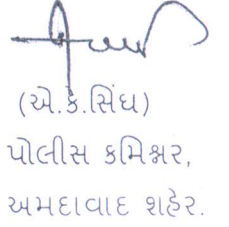 (એ.કે.સિંઘ)
પોલીસ કમિશ્નર,
અમદાવાદ શહેર.